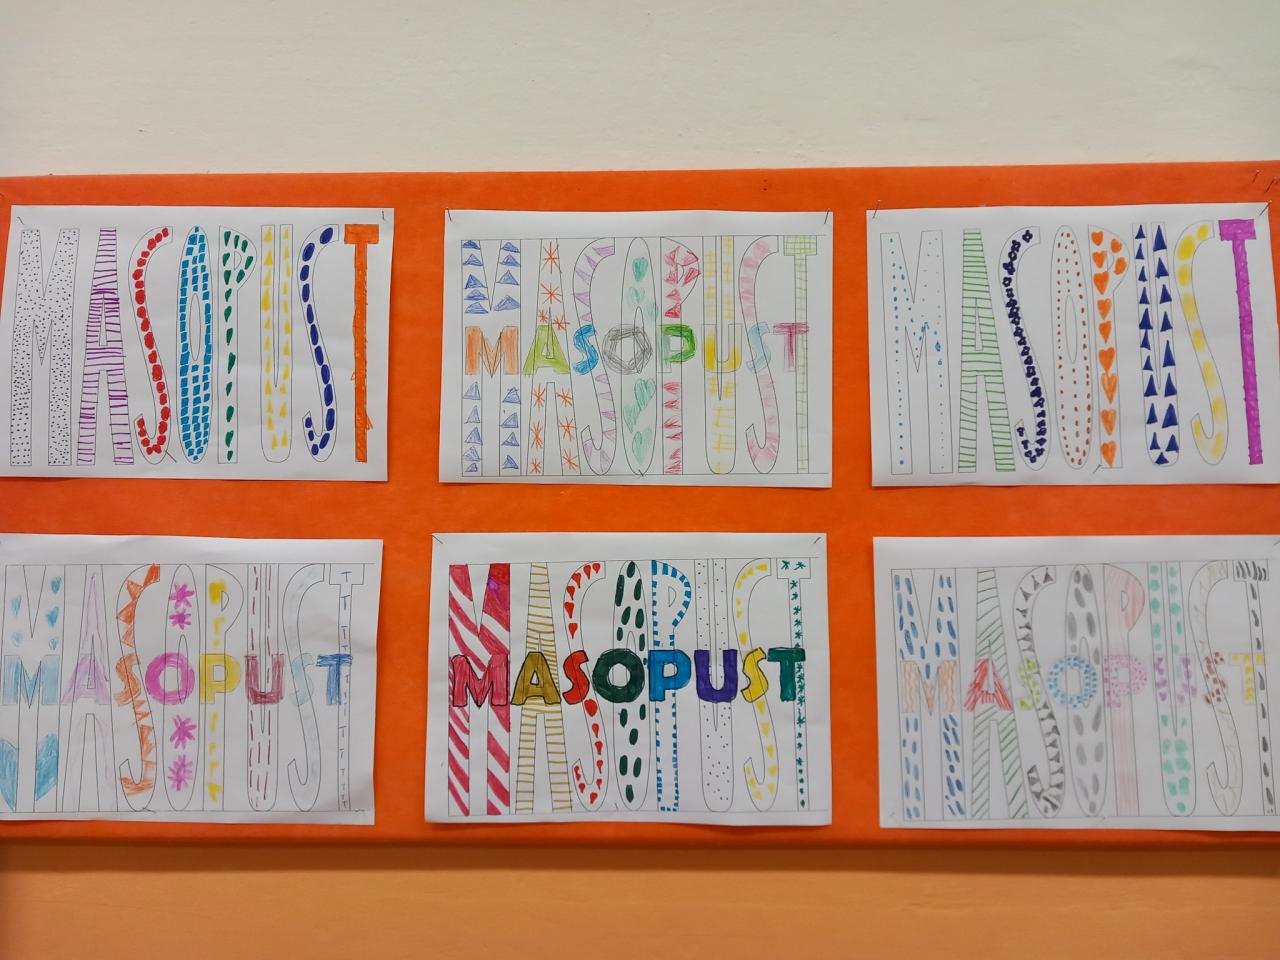 MASOPUST
MASOPUST
MASOPUST
MASOPUST
MASOPUST
MASOPUST
MASOPUST
MASOPUST
MASOPUST
MASOPUST